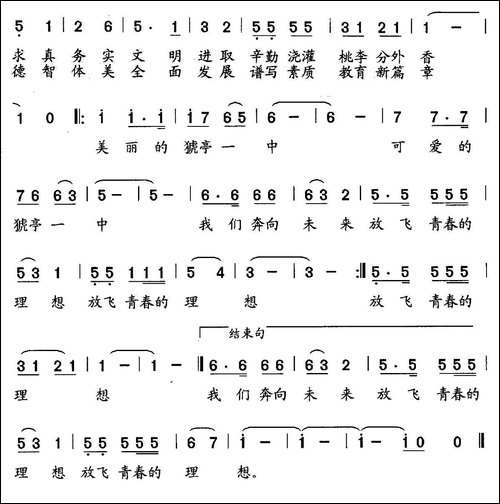 5 1 | 2 6 | 5· 1 | 3 2 | 55 55 | 31 21 | 1 – |
求 真 务 实 文 明 进 取 辛勤 浇灌 桃李 分外 香
德 智 体 美 全 面 发 展 谱写 素质 教育 新篇 章
1 0 ‖: i i·i | i7 65 | 6 – | 6 – | 7 7·7 |
美 丽的 猇亭 一 中 可 爱的
76 63 | 5 – | 5 – | 6·6 66 | 63 2 | 5·5 555 |
猇亭 一 中 我们 奔向 未 来 放飞 青春的
53 1 | 55 111 | 5 4 | 3 – | 3 – :‖ 5·5 555 |
理 想 放飞 青春的 理 想 放飞 青春的
结束句
31 21 | 1 – | 1 – ‖ 6·6 66 | 63 2 | 5·5 555 |
理 想 我们 奔向 未 来 放飞 青春的
53 1 | 55 555 | 6 7 | i – | i – | i – | i0 0 ‖
理 想 放飞 青春的 理 想。